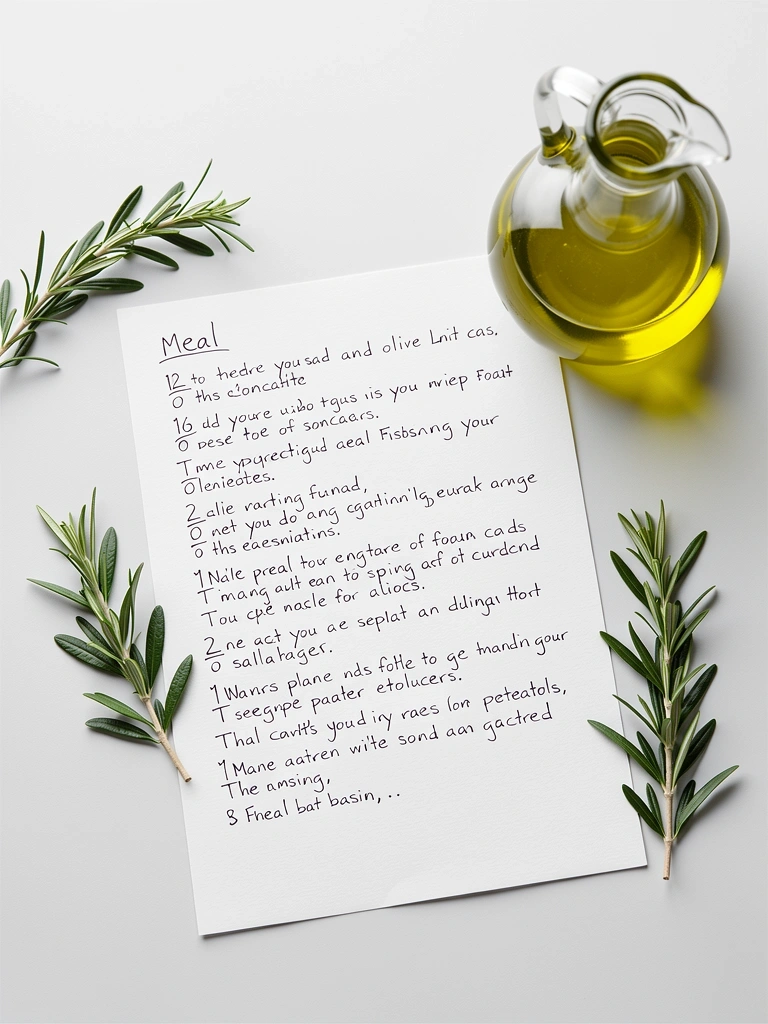 Meal
12 to hedre you sad and olive Lnit cas.
0 ths
16 dd youre tgus iis you nriep FoaIt
0 pese toe of soncaars.
Tme aeal Fisbsnng your
Olenieotes.
2 alie rarting funad,
0 net you do ang arnge
0 ths eaesniatins.
1 Nale preal tour engtare of foam cads
T mang ault ean to sping asf of curdcnd
Tou cpe nacle for aliocs.
2 ne act you ae seplat an ddlingi Hort
0 sallatager.
1 Wanrs plane nds foHle to ge mandin gour
T seegnpe paater etolucers.
Thal cavlt's youd iry raes lorn peteatols,
1 Mane aatren wite sond aan gactred
The amsing,
8 Fheal bat basin, ..